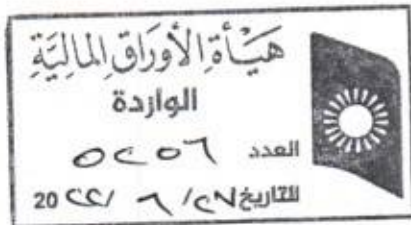 هيأة الأوراق المالية
الواردة
العدد ٥٢٥٦
التاريخ / ٦ / ٢٢ 20